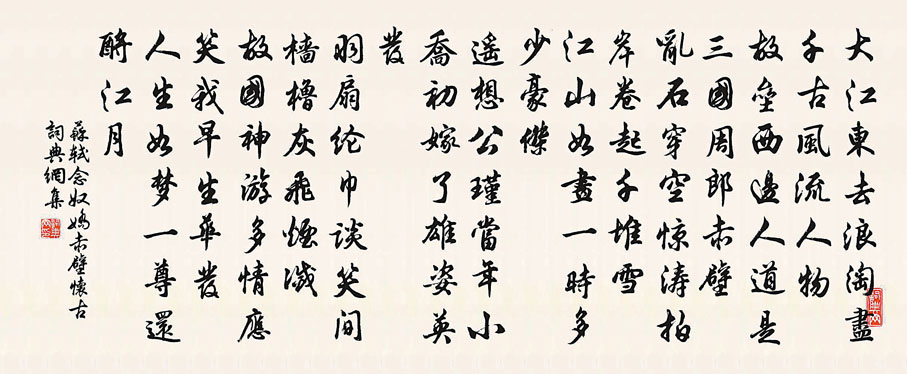 大江東去浪淘盡
千古風流人物
故壘西邊人道是
三國周郎赤壁
亂石穿空惊涛拍
岸卷起千堆雪
江山如畫一時多
少豪傑
遙想公瑾當年小
喬初嫁了雄姿英
發
羽扇纶巾談笑間
檣櫓灰飛煙滅
故國神游多情應
笑我早生華發
人生如梦一尊還
酹江月
蘇軾念奴嬌赤壁懷古
詞典網集